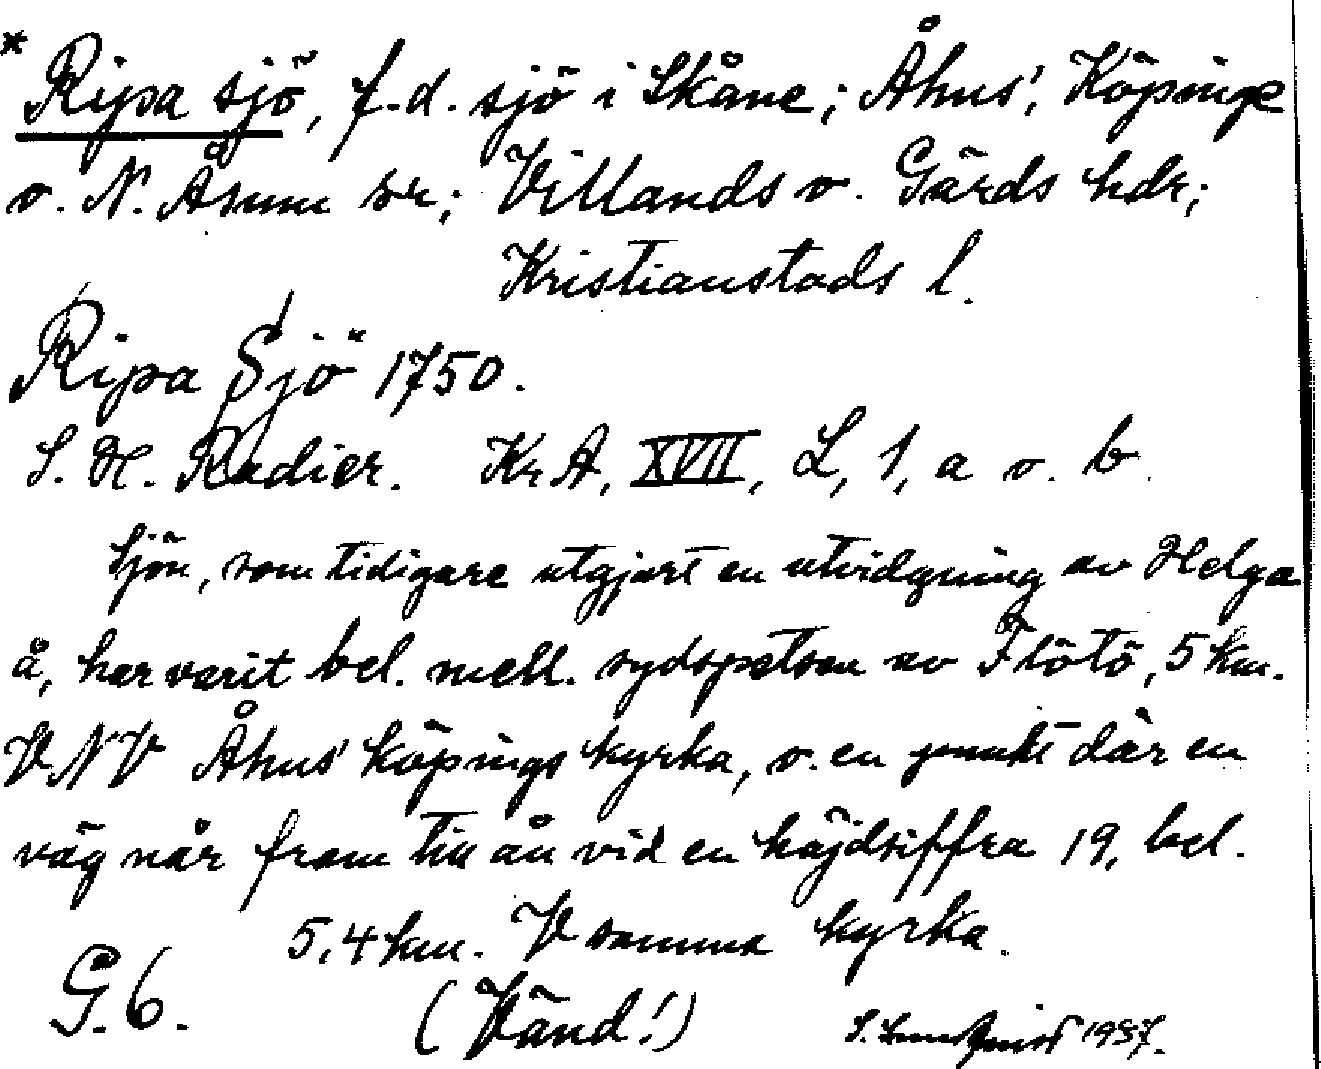 * Ripa sjö, f.d. sjö i Skåne; Åhus', Köpinge
o. N. Åsum sr; Villands o. Gärds hdr;
Kristianstads l.
Ripa Sjö 1750.
S. H. Radier. KrA, XVII, L, 1, a o. b.
Sjön, som tidigare utgjort en utvidgning av Helga
å, har varit bel. mell. sydspetsen av Flötö, 5 km.
VNV Åhus' köpings kyrka, o. en punkt där en
väg når fram till ån vid en höjdsiffra 19, bel.
5,4 km. V samma kyrka.
G.6. (Vänd!) S. Lundquist 1937.